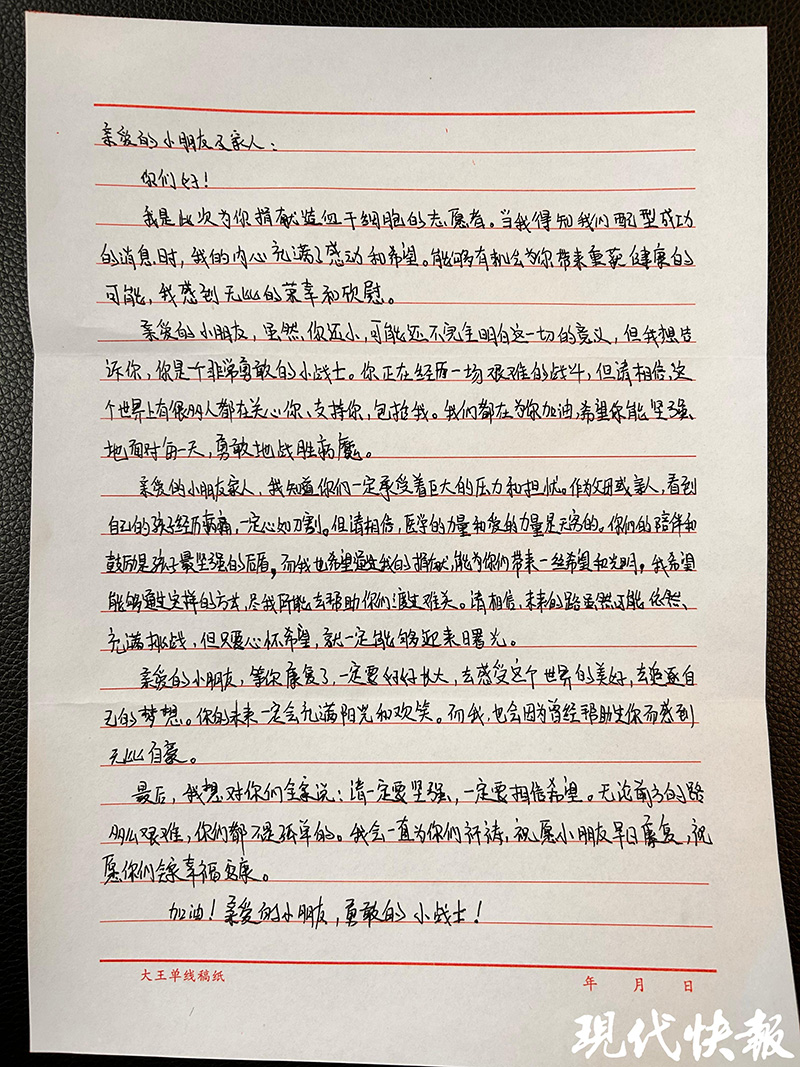 亲爱的小朋友及家人：
你们好！
我是此次为你捐献造血干细胞的志愿者。当我得知我们配型成功
的消息时，我的内心充满了感动和希望。能够有机会为你带来重获健康的
可能，我感到无比的荣幸和欣慰。
亲爱的小朋友，虽然，你还小，可能还不完全明白这一切的意义，但我想告
诉你，你是个非常勇敢的小战士。你正在经历一场艰难的战斗，但请相信，这
个世界上有很多人都在关心你、支持你，包括我。我们都在为你加油，希望你能坚强
地面对每一天，勇敢地战胜病魔。
亲爱的小朋友家人，我知道你们一定承受着巨大的压力和担忧。作为父母或亲人，看到
自己的孩子经历病痛，一定心如刀割。但请相信，医学的力量和爱的力量是无穷的。你们的陪伴和
鼓励是孩子最坚强的后盾，而我也希望通过我的捐献，能为你们带来一丝希望和光明。我希望
能够通过这样的方式，尽我所能去帮助你们渡过难关。请相信，未来的路虽然可能依然
充满挑战，但只要心怀希望，就一定能够迎来曙光。
亲爱的小朋友，等你康复了，一定要好好长大，去感受这个世界的美好，去追逐自
己的梦想。你的未来一定会充满阳光和欢笑。而我，也会因为曾经帮助过你而感到
无比自豪。
最后，我想对你们全家说：请一定要坚强，一定要相信希望。无论前方的路
多么艰难，你们都不是孤单的。我会一直为你们祈祷，祝愿小朋友早日康复，祝
愿你们全家幸福安康。
加油！亲爱的小朋友，勇敢的小战士！
大王单线稿纸
年 月 日
现代快報